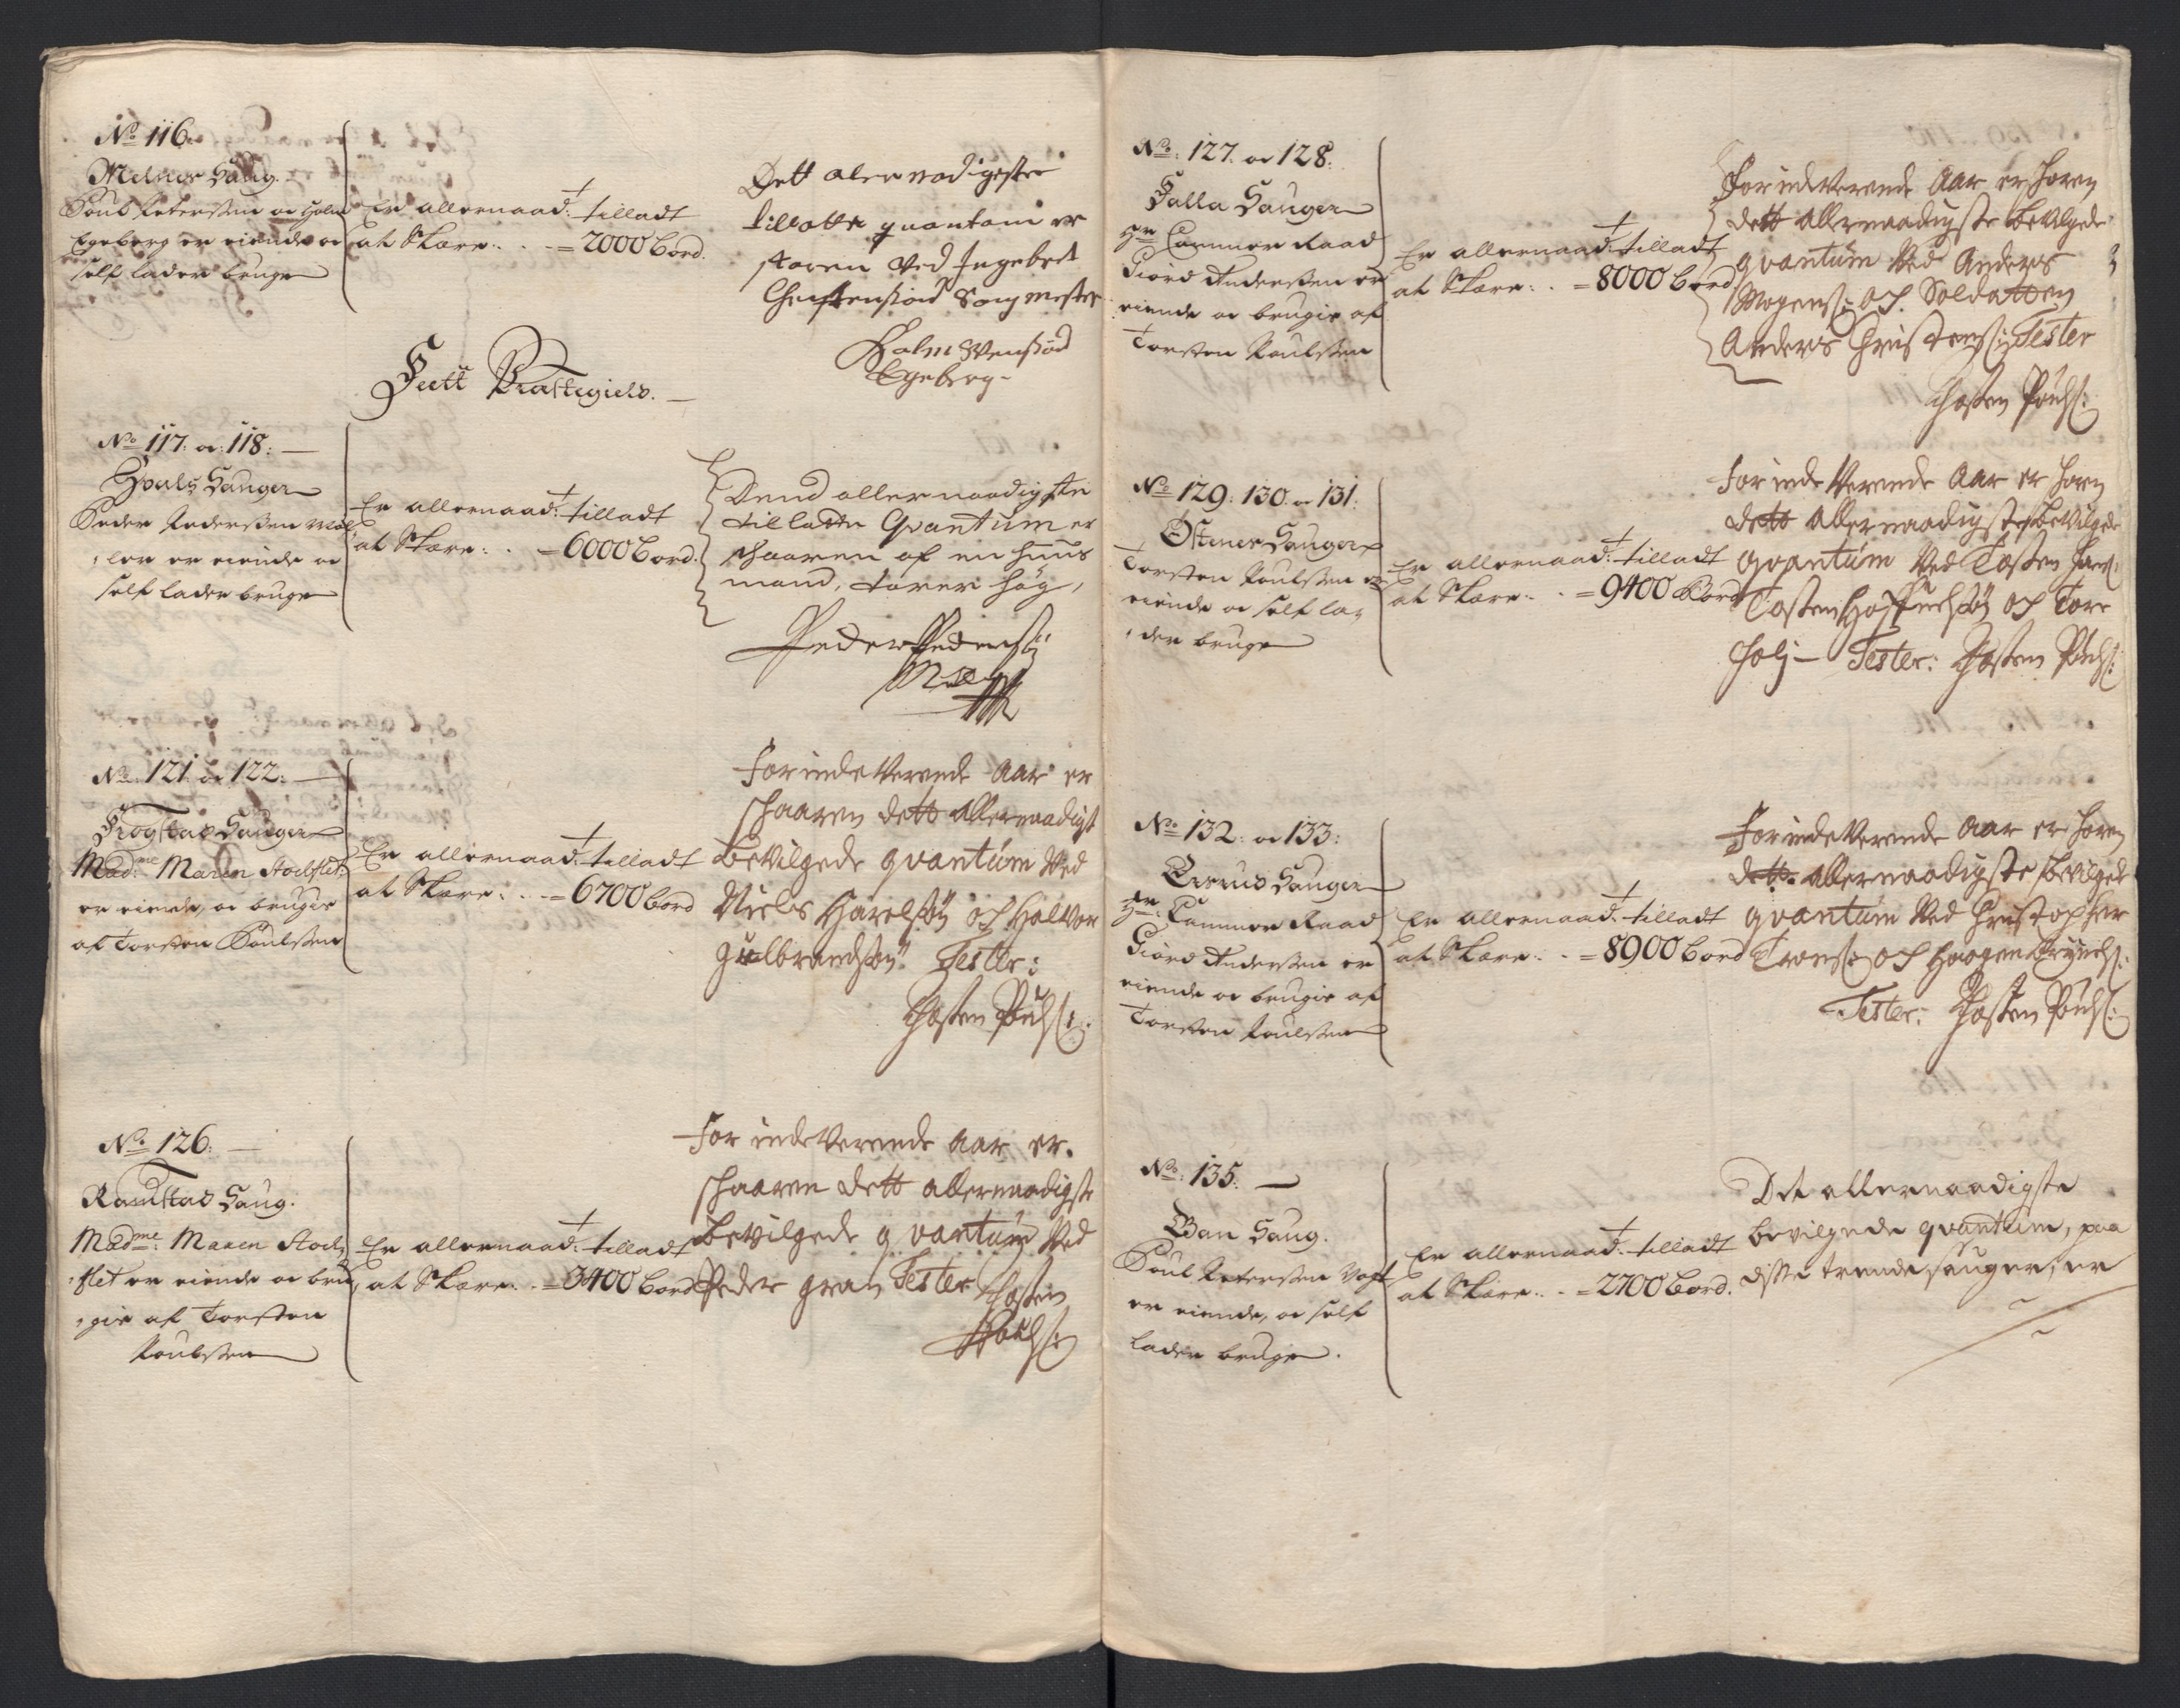 No 116.
Melnes Saug.
Poul Petersen oc Holm
Egeberg er eiende oc
self lader bruge
Er allernaad: tilladt
at Skære: . . = 2000 bord.
Dett alernadigeste
tillatte quantam er
skaaren ved Ingebret
Christensiød Saugmester
Holm Svensiød
Egeberg
Feett Præstegield.
No 117: oc: 118:
Hvals Sauger
Peder Pedersen Møl
ler er eiende oc
self lader bruge
Er allernaad: tilladt
at Skære: . . = 6000 bord.
Dend allernaadigste
tilladte Qvantum er
schaaren af en huus
mand, Torer Høg,
Peder Pedersøn
Møller
No 121: oc 122:
Frogstad Sauger
Madme: Maren Stocflet:
er eiende, oc brugis
af Torsten Poulsen
Er allernaad: tilladt
at Skære: . . = 6700 bord
For inde Verende Aar er
schaaren dett allernaadigst
beVilgede qvantúm Ved
Niels Harelsøn och Halvor
Gulbrandsøn Tester:
Thosten Poúls:
No 126:
Ramstad Saug.
Madme: Maren Stoc
flet er eiende oc bru
gis af Torsten
Poulsen
Er allernaad: tilladt
at Skære: . . = 3400 bord
For inde Verende Aar er
schaaren dett allernaadigste
beVilgede qvantúm Ved
Peder Gran Tester Thosten
Poúls:
No: 127: oc 128:
Falla Sauger
Hr Cammer Raad
Giord Andersen er
eiende oc brugis af
Torsten Poulsen
Er allernaad: tilladt
at Skære: . . = 8000 bord
For inde Verende Aar er skoren
dett allernaadigste beVilgede
qvantúm Ved Anders
Mogens: och Soldatten
Anders Christens: Tester
Thosten Poúls:
No 129: 130: oc 131:
Østenes Sauger
Torsten Poulsen er
eiende oc self la
der bruge
Er allernaad: tilladt
at Skære: . . = 9400 Bord
For inde Verende Aar er skoren
dett allernaadigste beVilgede
qvantúm Ved Tosten Hans:
Tosten och Tore
Tester: Thosten Poúls:
No 132: oc 133:
Sauger
Hr: Cammer Raad
Giord Andersen er
eiende oc brugis af
Torsten Poulsen
Er allernaad: tilladt
at Skære: . . = 8900 bord
For inde Verende Aar er skoren
dett allernaadigste beVilgede
qvantúm Ved Christopher
Trons: och Haagen
Tester: Thosten Poúls:
No: 135:
Ban Saug.
Poul Petersen Vogt
er eiende, oc self
lader bruge.
Er allernaad: tilladt
at Skære: . . = 2700 bord.
Det allernaadigste
bevilgede qvantum, paa
disse trende sauger, er